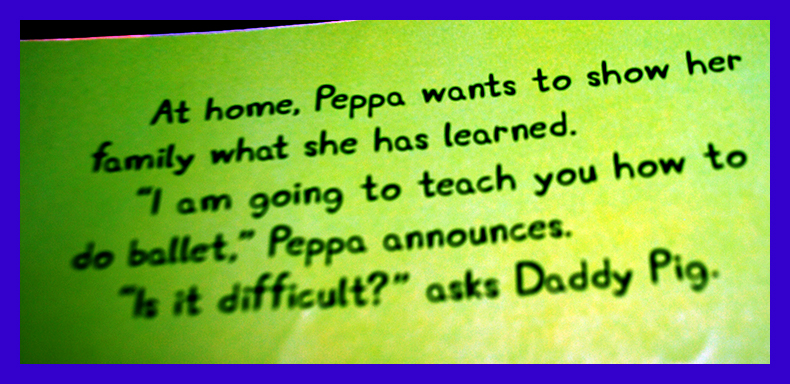 At home, Peppa wants to show her
family what she has learned.
"I am going to teach you how to
do ballet," Peppa announces.
"Is it difficult?" asks Daddy Pig.